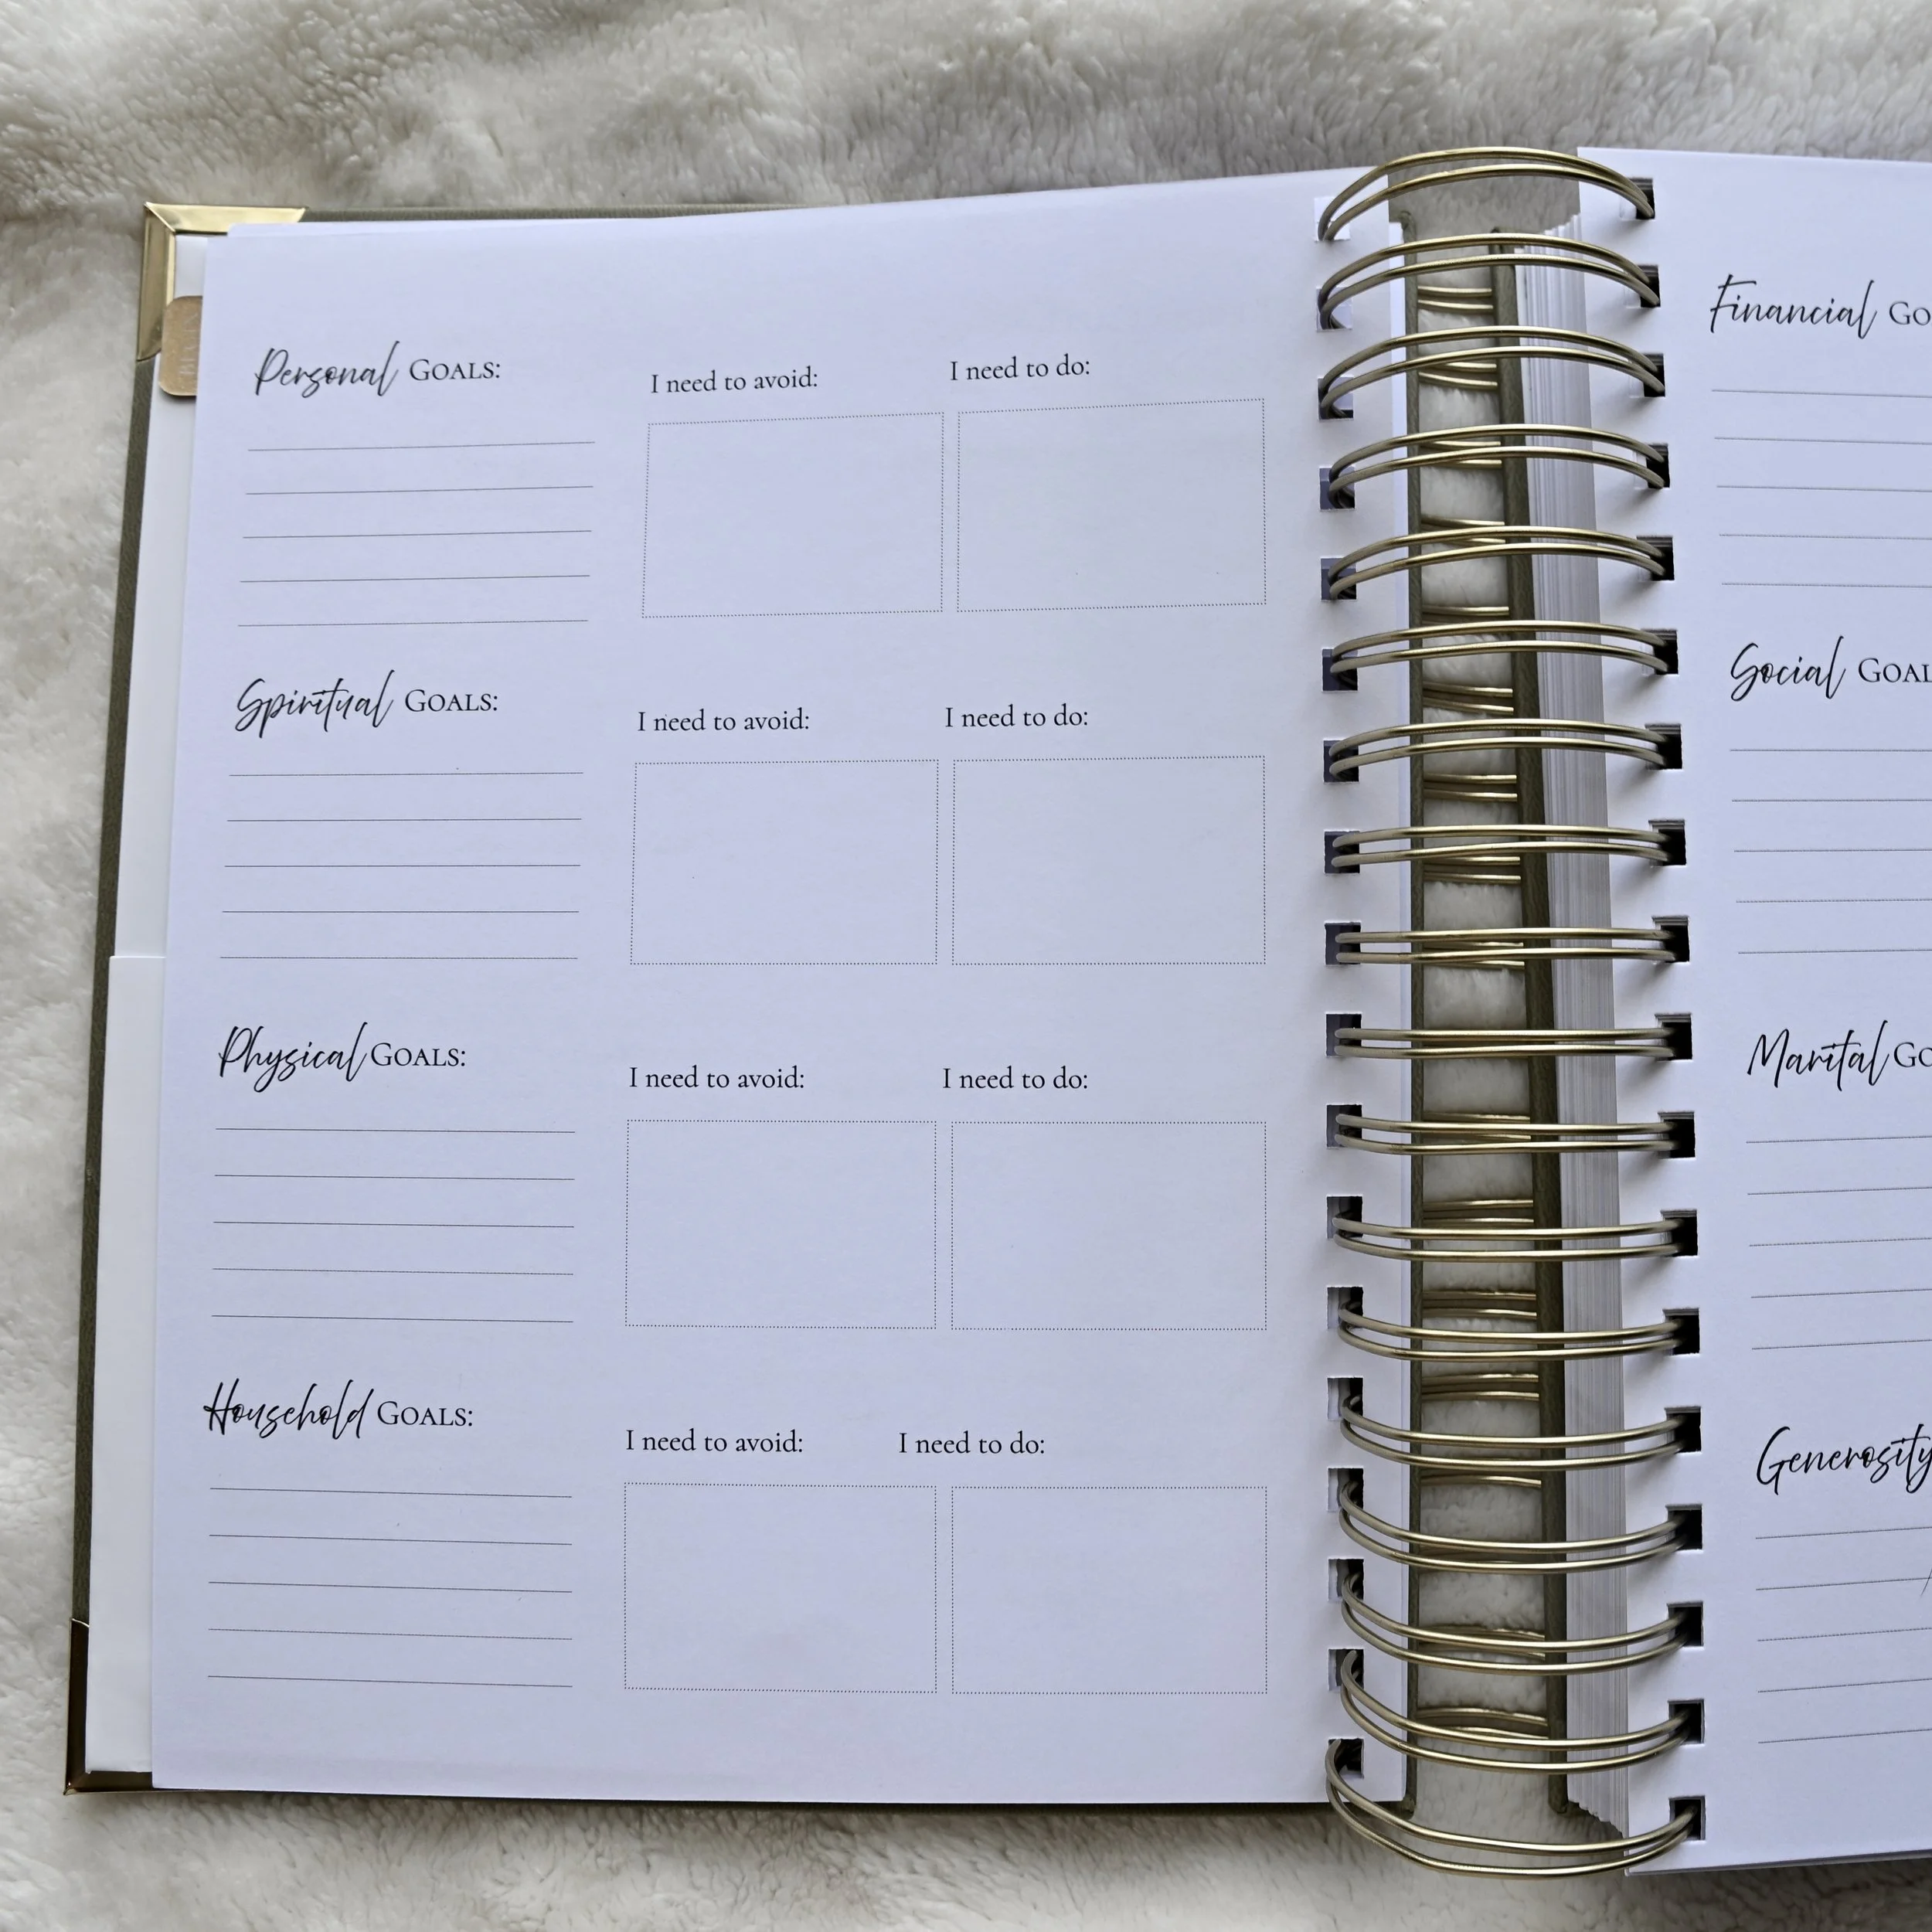 Personal GOALS:
I need to avoid:
I need to do:
Spiritual GOALS:
I need to avoid:
I need to do:
Physical GOALS:
I need to avoid:
I need to do:
Household GOALS:
I need to avoid:
I need to do:
Financial GO
Social GOAL
Marital GO
Generosity